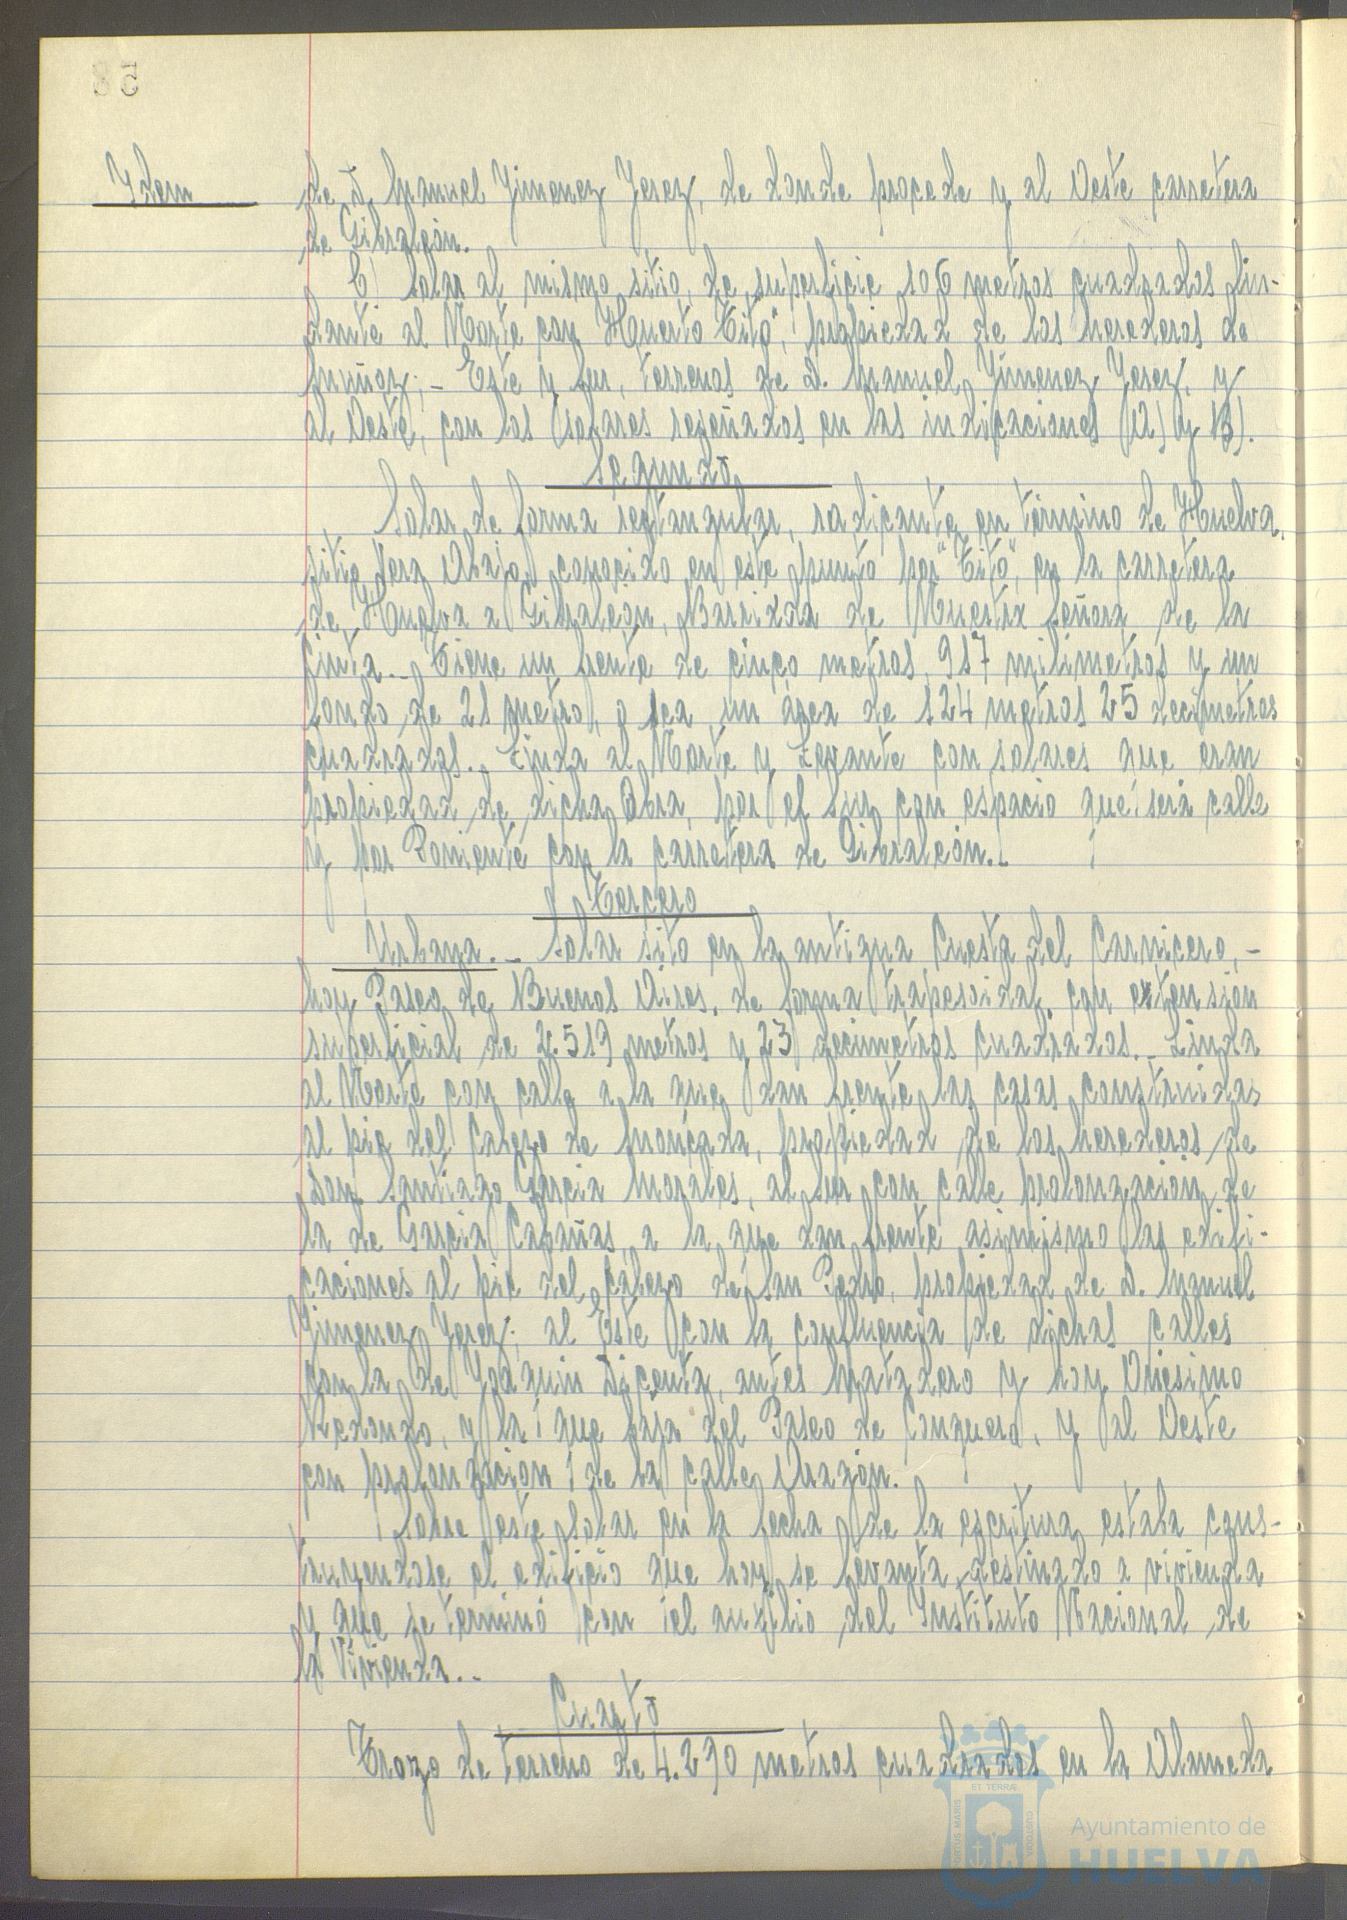 85
Ydem
de D. Manuel Jimenez Jerez, de donde procede y al Oeste carretera
de Gibraleón.
C) Solar al mismo sitio, de superficie 106 metros cuadrados lin-
dante al Norte con Huerto "Tito", propiedad de los herederos de
Muñoz; - Este y Sur, terrenos de D. Manuel Jimenez Jerez, y
al Oeste, con los solares reseñados en las indicaciones (A) y (B).
Segundo
Solar de forma rectangular, radicante en término de Huelva,
sitio Vera Abajo, conocido en este punto por "Tito", en la carretera
de Huelva a Gibraleón, Barriada de Nuestra Señora de la
Cinta.- Tiene un frente de cinco metros, 917 milimetros y un
fondo de 21 metro, o sea, un área de 124 metros 25 decimetros
cuadrados.- Linda al Norte y Levante con solares que eran
propiedad de dicha Obra, por el Sur con espacio que será calle
y por Poniente con la carretera de Gibraleón.-
Tercero
Urbana.- Solar sito en la antigua Cuesta del Carnicero, -
hoy Paseo de Buenos Aires, de forma trapesoidal, con extensión
superficial de 2.519 metros y 23 decimetros cuadrados.- Linda
al Norte con calle a la que dan frente las casas construidas
al pie del Cabezo de Moncada, propiedad de los herederos de
Don Santiago Garcia Morales, al Sur con calle prolongación de
la de Garcia Cabañas, a la que dan frente asimismo las edifi-
caciones al pie del cabezo de San Pedro, propiedad de D. Manuel
Jimenez Jerez; al Este con la confluencia de dichas calles
con la de Joaquin Dicenta, antes Matadero y hoy Onésimo
Redondo, y la que baja del Paseo de Conquero, y al Oeste
con prolongación de la calle Aragón.
Sobre este solar en la fecha de la escritura estaba cons-
truyendose el edificio que hoy se levanta destinado a vivienda
y que se terminó con el auxilio del Instituto Nacional de
la Vivienda.-
Cuarto
Trozo de terreno de 4.290 metros cuadrados en la Alameda
PORTUS MARIS ET TERRÆ CUSTODIA
Ayuntamiento de
HUELVA